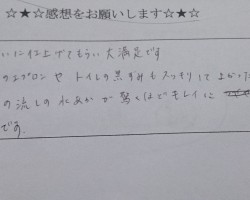 ☆★☆感想をお願いします☆★☆
いに仕上げてもらい大満足です
のエプロンや トイレの黒ずみもスッキリして よかった
の流しの水あかが驚くほどキレイに
です。